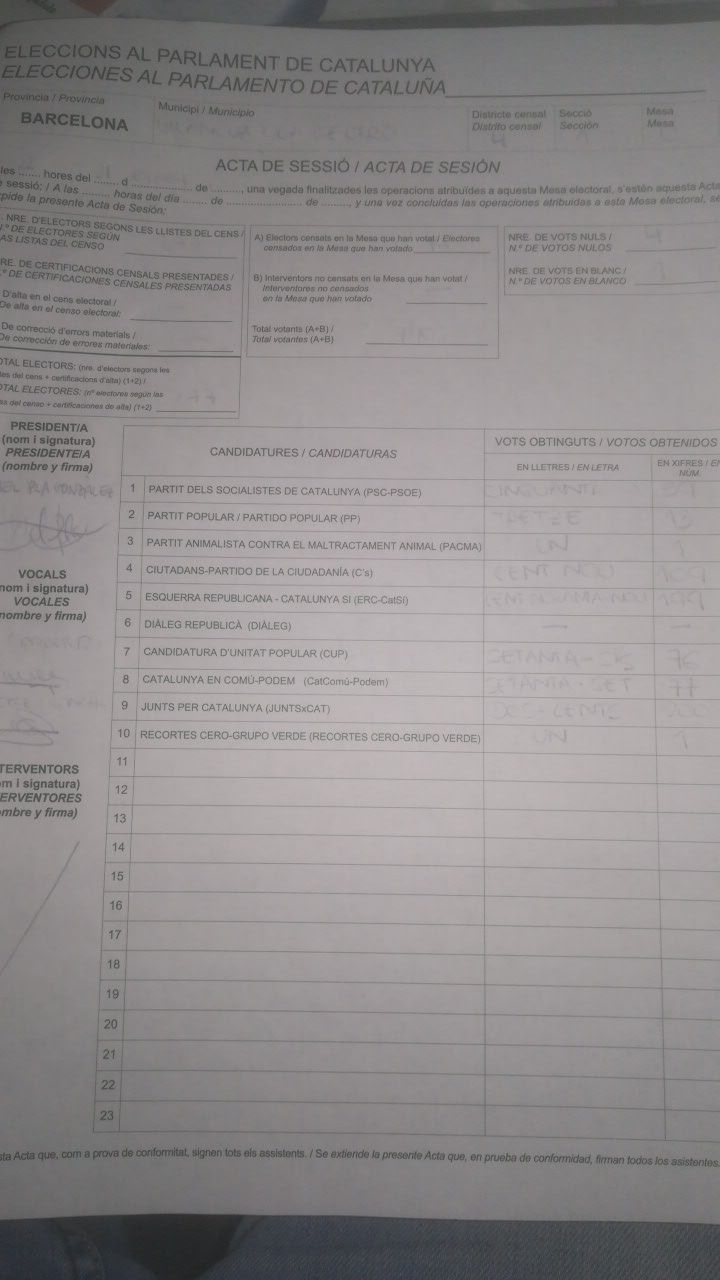 ELECCIONS AL PARLAMENT DE CATALUNYA
ELECCIONES AL PARLAMENTO DE CATALUÑA
Província / Provincia
BARCELONA
Municipi / Municipio
Districte censal
Distrito censal
4
Secció
Sección
Mesa
Mesa
ACTA DE SESSIÓ / ACTA DE SESIÓN
les ....... hores del ....... d ............... de ........, una vegada finalitzades les operacions atribuïdes a aquesta Mesa electoral, s'estén aquesta Acta
sessió; / A las ........ horas del día ....... de ............... de ........, y una vez concluidas las operaciones atribuidas a esta Mesa electoral, se
pide la presente Acta de Sesión:
NRE. D'ELECTORS SEGONS LES LLISTES DEL CENS /
N.º DE ELECTORES SEGÚN
AS LISTAS DEL CENSO
RE. DE CERTIFICACIONS CENSALS PRESENTADES /
º DE CERTIFICACIONES CENSALES PRESENTADAS
D'alta en el cens electoral /
De alta en el censo electoral:
De correcció d'errors materials /
De corrección de errores materiales:
OTAL ELECTORS: (nre. d'electors segons les
es del cens + certificacions d'alta) (1+2) /
OTAL ELECTORES: (nº electores según las
as del censo + certificaciones de alta) (1+2)
A) Electors censats en la Mesa que han votat / Electores
censados en la Mesa que han votado
B) Interventors no censats en la Mesa que han votat /
Interventores no censados
en la Mesa que han votado
Total votants (A+B) /
Total votantes (A+B)
NRE. DE VOTS NULS /
N.º DE VOTOS NULOS
4
NRE. DE VOTS EN BLANC /
N.º DE VOTOS EN BLANCO
PRESIDENT/A
(nom i signatura)
PRESIDENTE/A
(nombre y firma)
VOCALS
nom i signatura)
VOCALES
nombre y firma)
TERVENTORS
om i signatura)
ERVENTORES
mbre y firma)
CANDIDATURES / CANDIDATURAS
VOTS OBTINGUTS / VOTOS OBTENIDOS
EN LLETRES / EN LETRA
EN XIFRES / EN
NÚM.
1 PARTIT DELS SOCIALISTES DE CATALUNYA (PSC-PSOE)
2 PARTIT POPULAR / PARTIDO POPULAR (PP) TRETZE 13
3 PARTIT ANIMALISTA CONTRA EL MALTRACTAMENT ANIMAL (PACMA) UN 1
4 CIUTADANS-PARTIDO DE LA CIUDADANÍA (C's) CENT NOU 109
5 ESQUERRA REPUBLICANA - CATALUNYA SI (ERC-CatSí) 199
6 DIÀLEG REPUBLICÀ (DIÀLEG) — —
7 CANDIDATURA D'UNITAT POPULAR (CUP) SETANTA-SIS 76
8 CATALUNYA EN COMÚ-PODEM (CatComú-Podem) SETANTA-SET 77
9 JUNTS PER CATALUNYA (JUNTSxCAT) DOS-CENTS 200
10 RECORTES CERO-GRUPO VERDE (RECORTES CERO-GRUPO VERDE) UN 1
11
12
13
14
15
16
17
18
19
20
21
22
23
sta Acta que, com a prova de conformitat, signen tots els assistents. / Se extiende la presente Acta que, en prueba de conformidad, firman todos los asistentes.